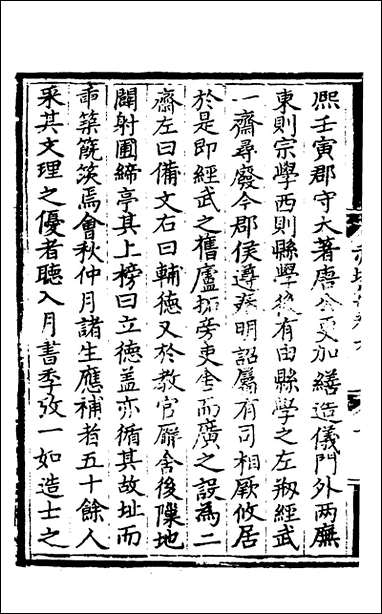 熈壬寅郡守大著唐公更加繕造儀門外兩廡
東則宗學西則縣學後有由縣學之左刱經武
一齋尋廢今郡侯遵奉明詔屬有司相厥攸居
於是即經武之舊廬拓旁吏舍而廣之設為二
齋左曰備文右曰輔德又於教官廨舍後隙地
闢射圃締亭其上榜曰立德盖亦循其故址而
亟築旣茨焉會秋仲月諸生應補者五十餘人
采其文理之優者聽入月書季攷一如造士之